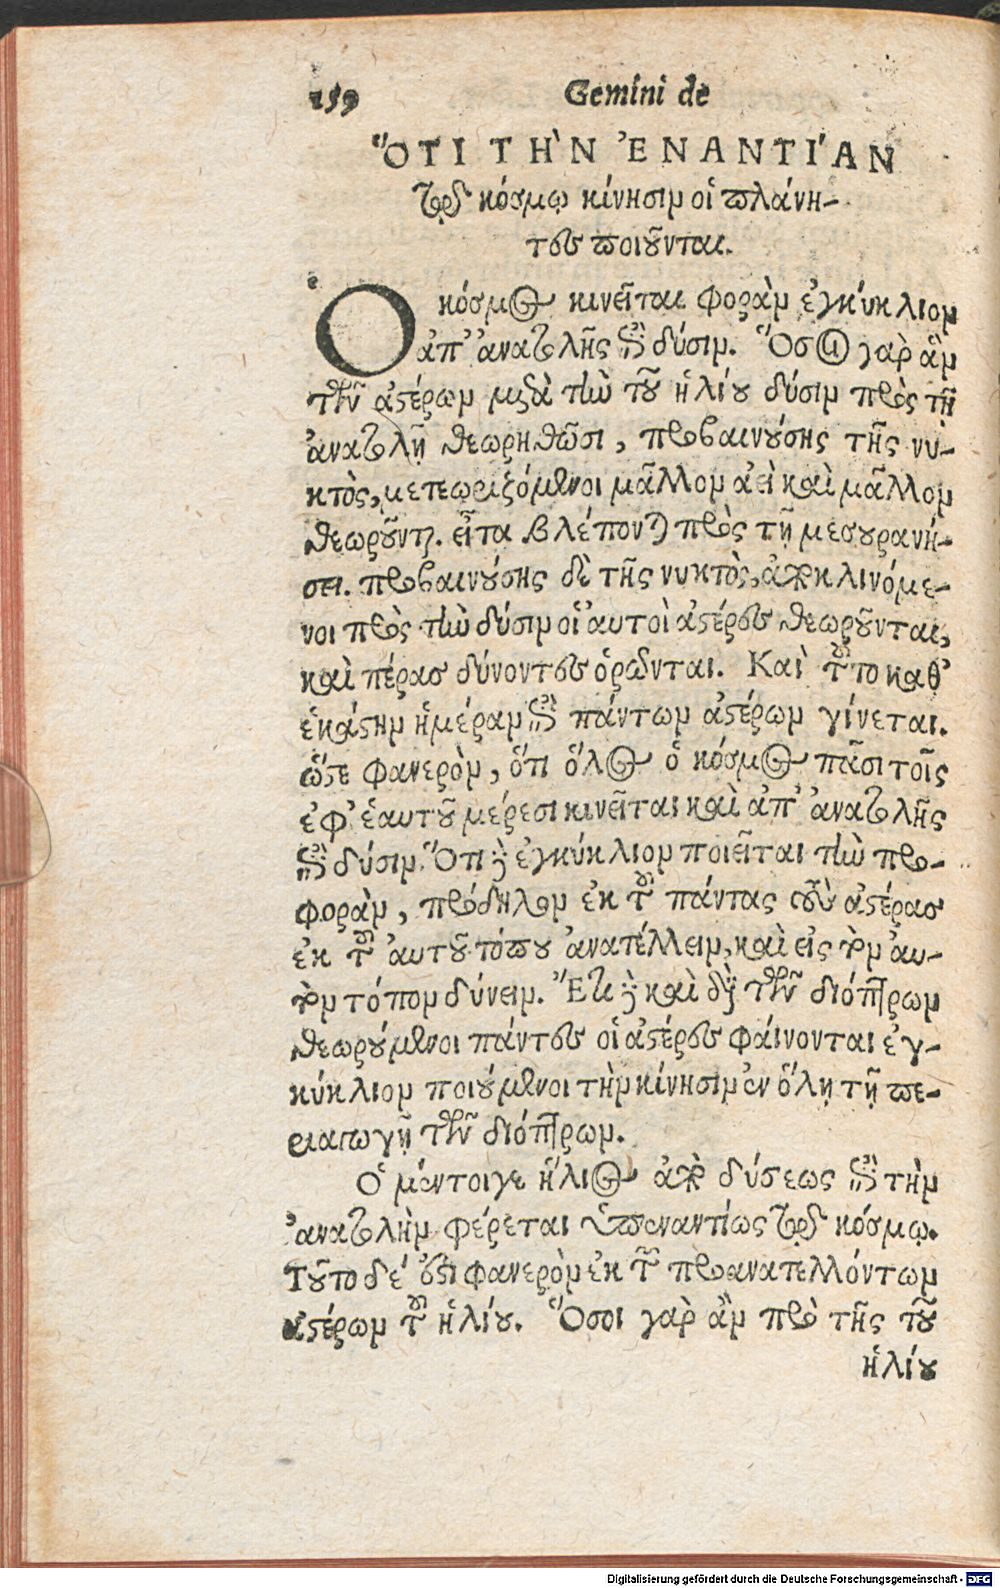 159 Gemini de
ὍΤΙ ΤῊΝ ἘΝΑΝΤΊΑΝ
τῷ κόσμῳ κίνησιν οἱ πλάνη-
τες ποιοῦνται.
Ὁ κόσμος κινεῖται φορὰν ἐγκύκλιον
ἀπ' ἀνατολῆς ἐπὶ δύσιν. Ὅσοι γὰρ ἂν
τῶν ἀστέρων μετὰ τὴν τοῦ ἡλίου δύσιν πρὸς τῇ
ἀνατολῇ θεωρηθῶσι, προβαινούσης τῆς νυ-
κτὸς, μετεωριζόμενοι μᾶλλον ἀεὶ καὶ μᾶλλον
θεωροῦνται. εἶτα βλέπονται πρὸς τῇ μεσουρανή-
σει. προβαινούσης δὲ τῆς νυκτὸς, ἀποκλινόμε-
νοι πρὸς τὴν δύσιν οἱ αὐτοὶ ἀστέρες θεωροῦνται,
καὶ πέρας δύνοντες ὁρῶνται. Καὶ τοῦτο καθ'
ἑκάστην ἡμέραν ἐπὶ πάντων ἀστέρων γίνεται.
ὥστε φανερὸν, ὅτι ὅλος ὁ κόσμος πᾶσι τοῖς
ἐφ' ἑαυτοῦ μέρεσι κινεῖται καὶ ἀπ' ἀνατολῆς
ἐπὶ δύσιν. Ὅτι δὲ ἐγκύκλιον ποιεῖται τὴν προ-
φορὰν, πρόδηλον ἐκ τοῦ πάντας τοὺς ἀστέρας
ἐκ τοῦ αὐτοῦ τόπου ἀνατέλλειν, καὶ εἰς τὸν αὐ-
τὸν τόπον δύνειν. Ἔτι δὲ καὶ διὰ τῶν διόπτρων
θεωρούμενοι πάντες οἱ ἀστέρες φαίνονται ἐγ-
κύκλιον ποιούμενοι τὴν κίνησιν ἐν ὅλῃ τῇ πε-
ριαγωγῇ τῶν διόπτρων.
Ὁ μέντοιγε ἥλιος ἀπὸ δύσεως ἐπὶ τὴν
ἀνατολὴν φέρεται ὑπεναντίως τῷ κόσμῳ.
Τοῦτο δέ ἐστι φανερὸν ἐκ τῶν προανατελλόντων
ἀστέρων τοῦ ἡλίου. Ὅσοι γὰρ ἂν πρὸ τῆς τοῦ
ἡλίου
Digitalisierung gefördert durch die Deutsche Forschungsgemeinschaft - DFG